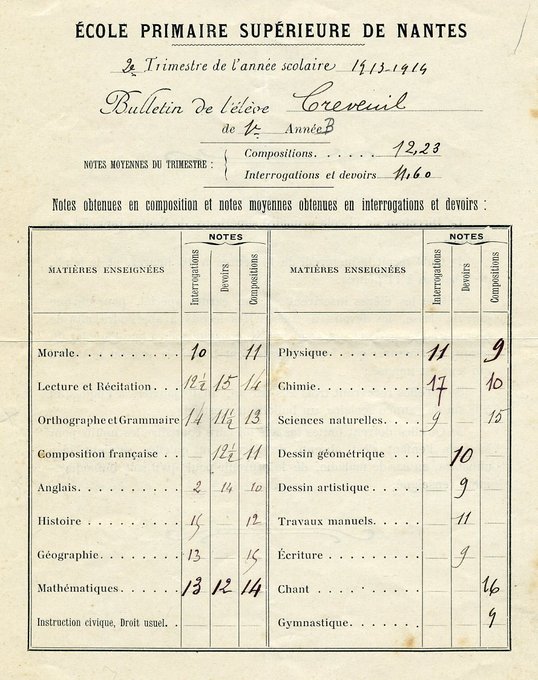 ÉCOLE PRIMAIRE SUPÉRIEURE DE NANTES
2e Trimestre de l'année scolaire 1913-1914
Bulletin de l'élève Creveuil
de 1re Année B
NOTES MOYENNES DU TRIMESTRE :
Compositions. . . . . . . 12,23
Interrogations et devoirs . 11,60
Notes obtenues en composition et notes moyennes obtenues en interrogations et devoirs :
MATIÈRES ENSEIGNÉES NOTES Interrogations Devoirs Compositions
Morale. . . . . . . . . . . 10 11
Lecture et Récitation. . . 12 1/2 15 14
Orthographe et Grammaire 14 11 1/2 13
Composition française . . 12 1/2 11
Anglais. . . . . . . . . . 2 14 10
Histoire . . . . . . . . . 15 12
Géographie. . . . . . . . 13 15
Mathématiques. . . . . . . 13 12 14
Instruction civique, Droit usuel. .
MATIÈRES ENSEIGNÉES NOTES Interrogations Devoirs Compositions
Physique. . . . . . . . . 11 9
Chimie. . . . . . . . . . 17 10
Sciences naturelles. . . . 9 15
Dessin géométrique. . . . 10
Dessin artistique. . . . . 9
Travaux manuels. . . . . . 11
Écriture. . . . . . . . . 9
Chant . . . . . . . . . . 16
Gymnastique. . . . . . . . 9